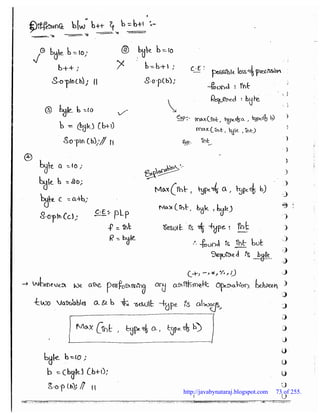 Difference b/w b++ & b = b+1 :-
① byte b = 10;
b++ ;
S.o.pln(b); 11
② byte b = 10
b = b+1 ;
S.o.p(b);
C.E: possible loss of precision
found : int
Required : byte
③ byte b = 10
b = (byte) (b+1)
S.o.pln(b); // 11
Exp:- max(int, type of a, type of b)
max(int, byte, int)
int
④
byte a = 10 ;
byte b = 20;
byte c = a+b;
S.o.pln(c);
C.E:- PLP
f = int
R = byte
Explanation:-
Max(int, type of a, type of b)
Max(int, byte, byte)
result is of type : int
∴ found is int but
Required is byte
(+, -, *, %, /)
→ Whenever we are performing any arithmetic Operation between
two Variables a & b the result type is always,
Max (int, type of a, type of b)
byte b = 10 ;
b = (byte) (b+1);
S.o.p(b); // 11
http://javabynataraj.blogspot.com 73 of 255.